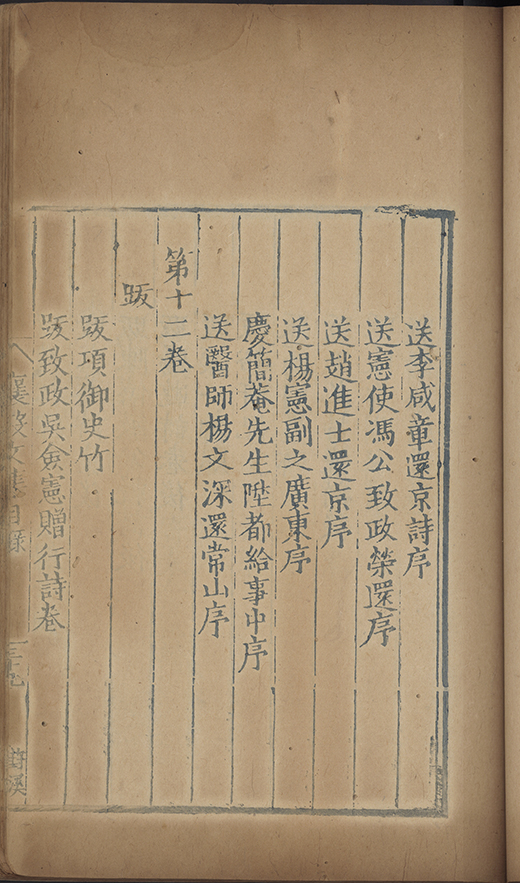 送李咸童還京詩序
送憲使馮公致政榮還序
送趙進士還京序
送楊憲副之廣東序
慶簡菴先生陞都給事中序
送醫師楊文深還常山序
第十二卷
跋
跋項御史竹
跋致政吳僉憲贈行詩卷
襄毅文集目錄